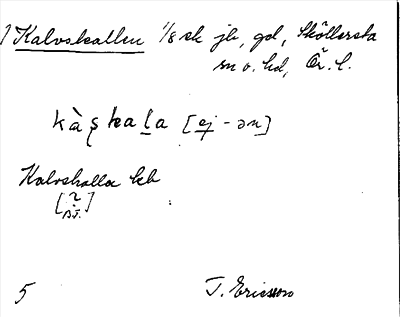 Kalvskallen 1/8 sk jb, gd, Sköllersta
sn o. hd, Ör. l.
kàʂkaḷa [ej -ən]
Kalvskalla kb
[?]
5 T. Ericsson